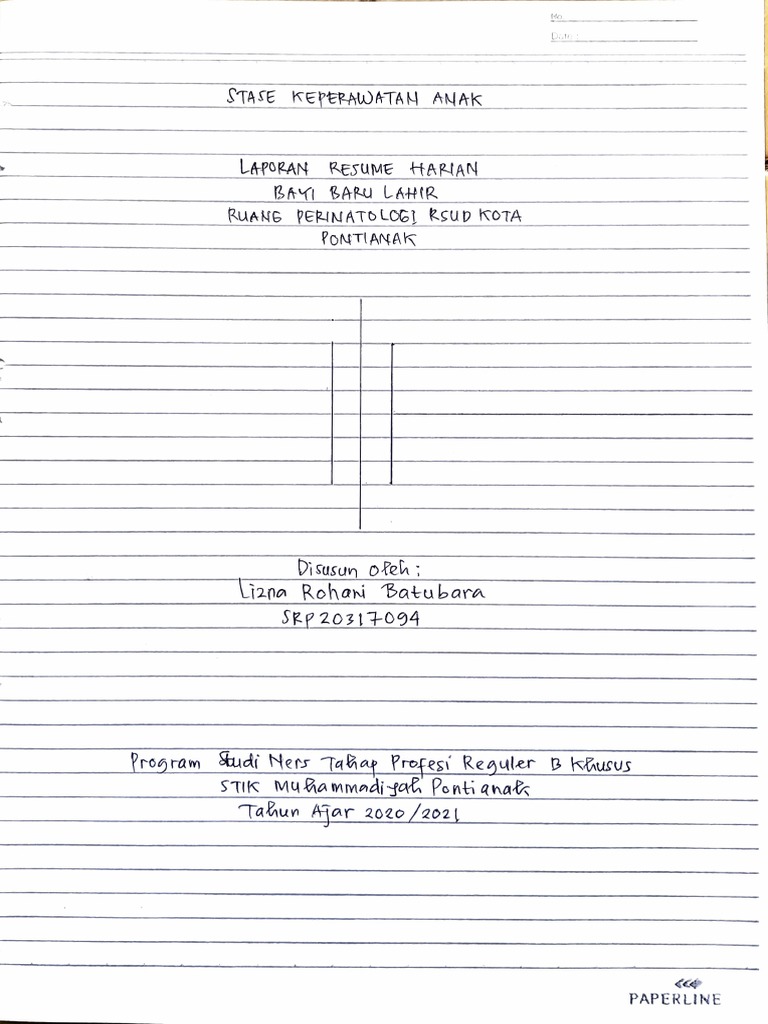 No
Date :
STASE KEPERAWATAN ANAK
LAPORAN RESUME HARIAN
BAYI BARU LAHIR
RUANG PERINATOLOGI RSUD KOTA
PONTIANAK
Disusun oleh :
Lizna Rohani Batubara
SRP20317094
Program Studi Ners Tahap Profesi Reguler B Khusus
STIK Muhammadiyah Pontianak
Tahun Ajar 2020/2021
PAPERLINE